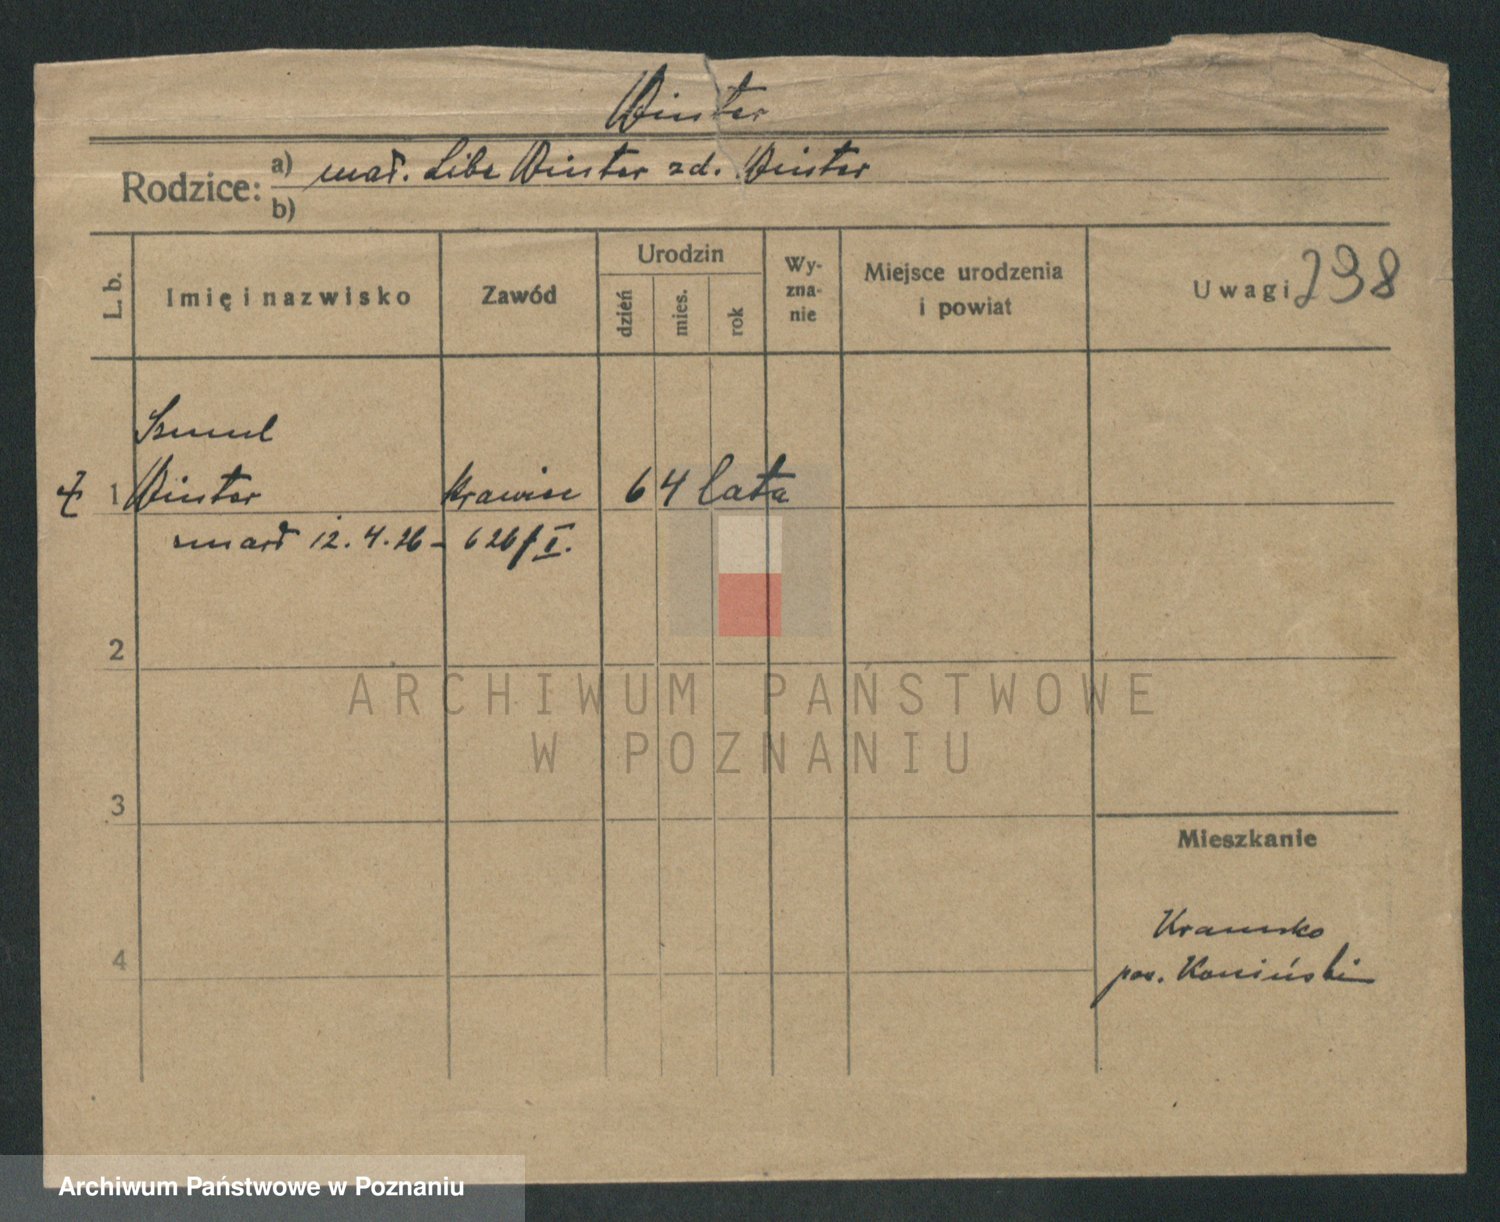 Winter
Rodzice: a) małż. Liba Winter zd. Winter
b)
L. b.
Imię i nazwisko
Zawód
Urodzin
dzień
mies.
rok
Wy-
zna-
nie
Miejsce urodzenia
i powiat
Uwagi 298
Szmul
1 Winter krawiec 64 lata
zmarł 12.4.26 - 626/I.
2
3
4
Mieszkanie
Kramsko
pow. Koniński
ARCHIWUM PAŃSTWOWE
W POZNANIU
Archiwum Państwowe w Poznaniu